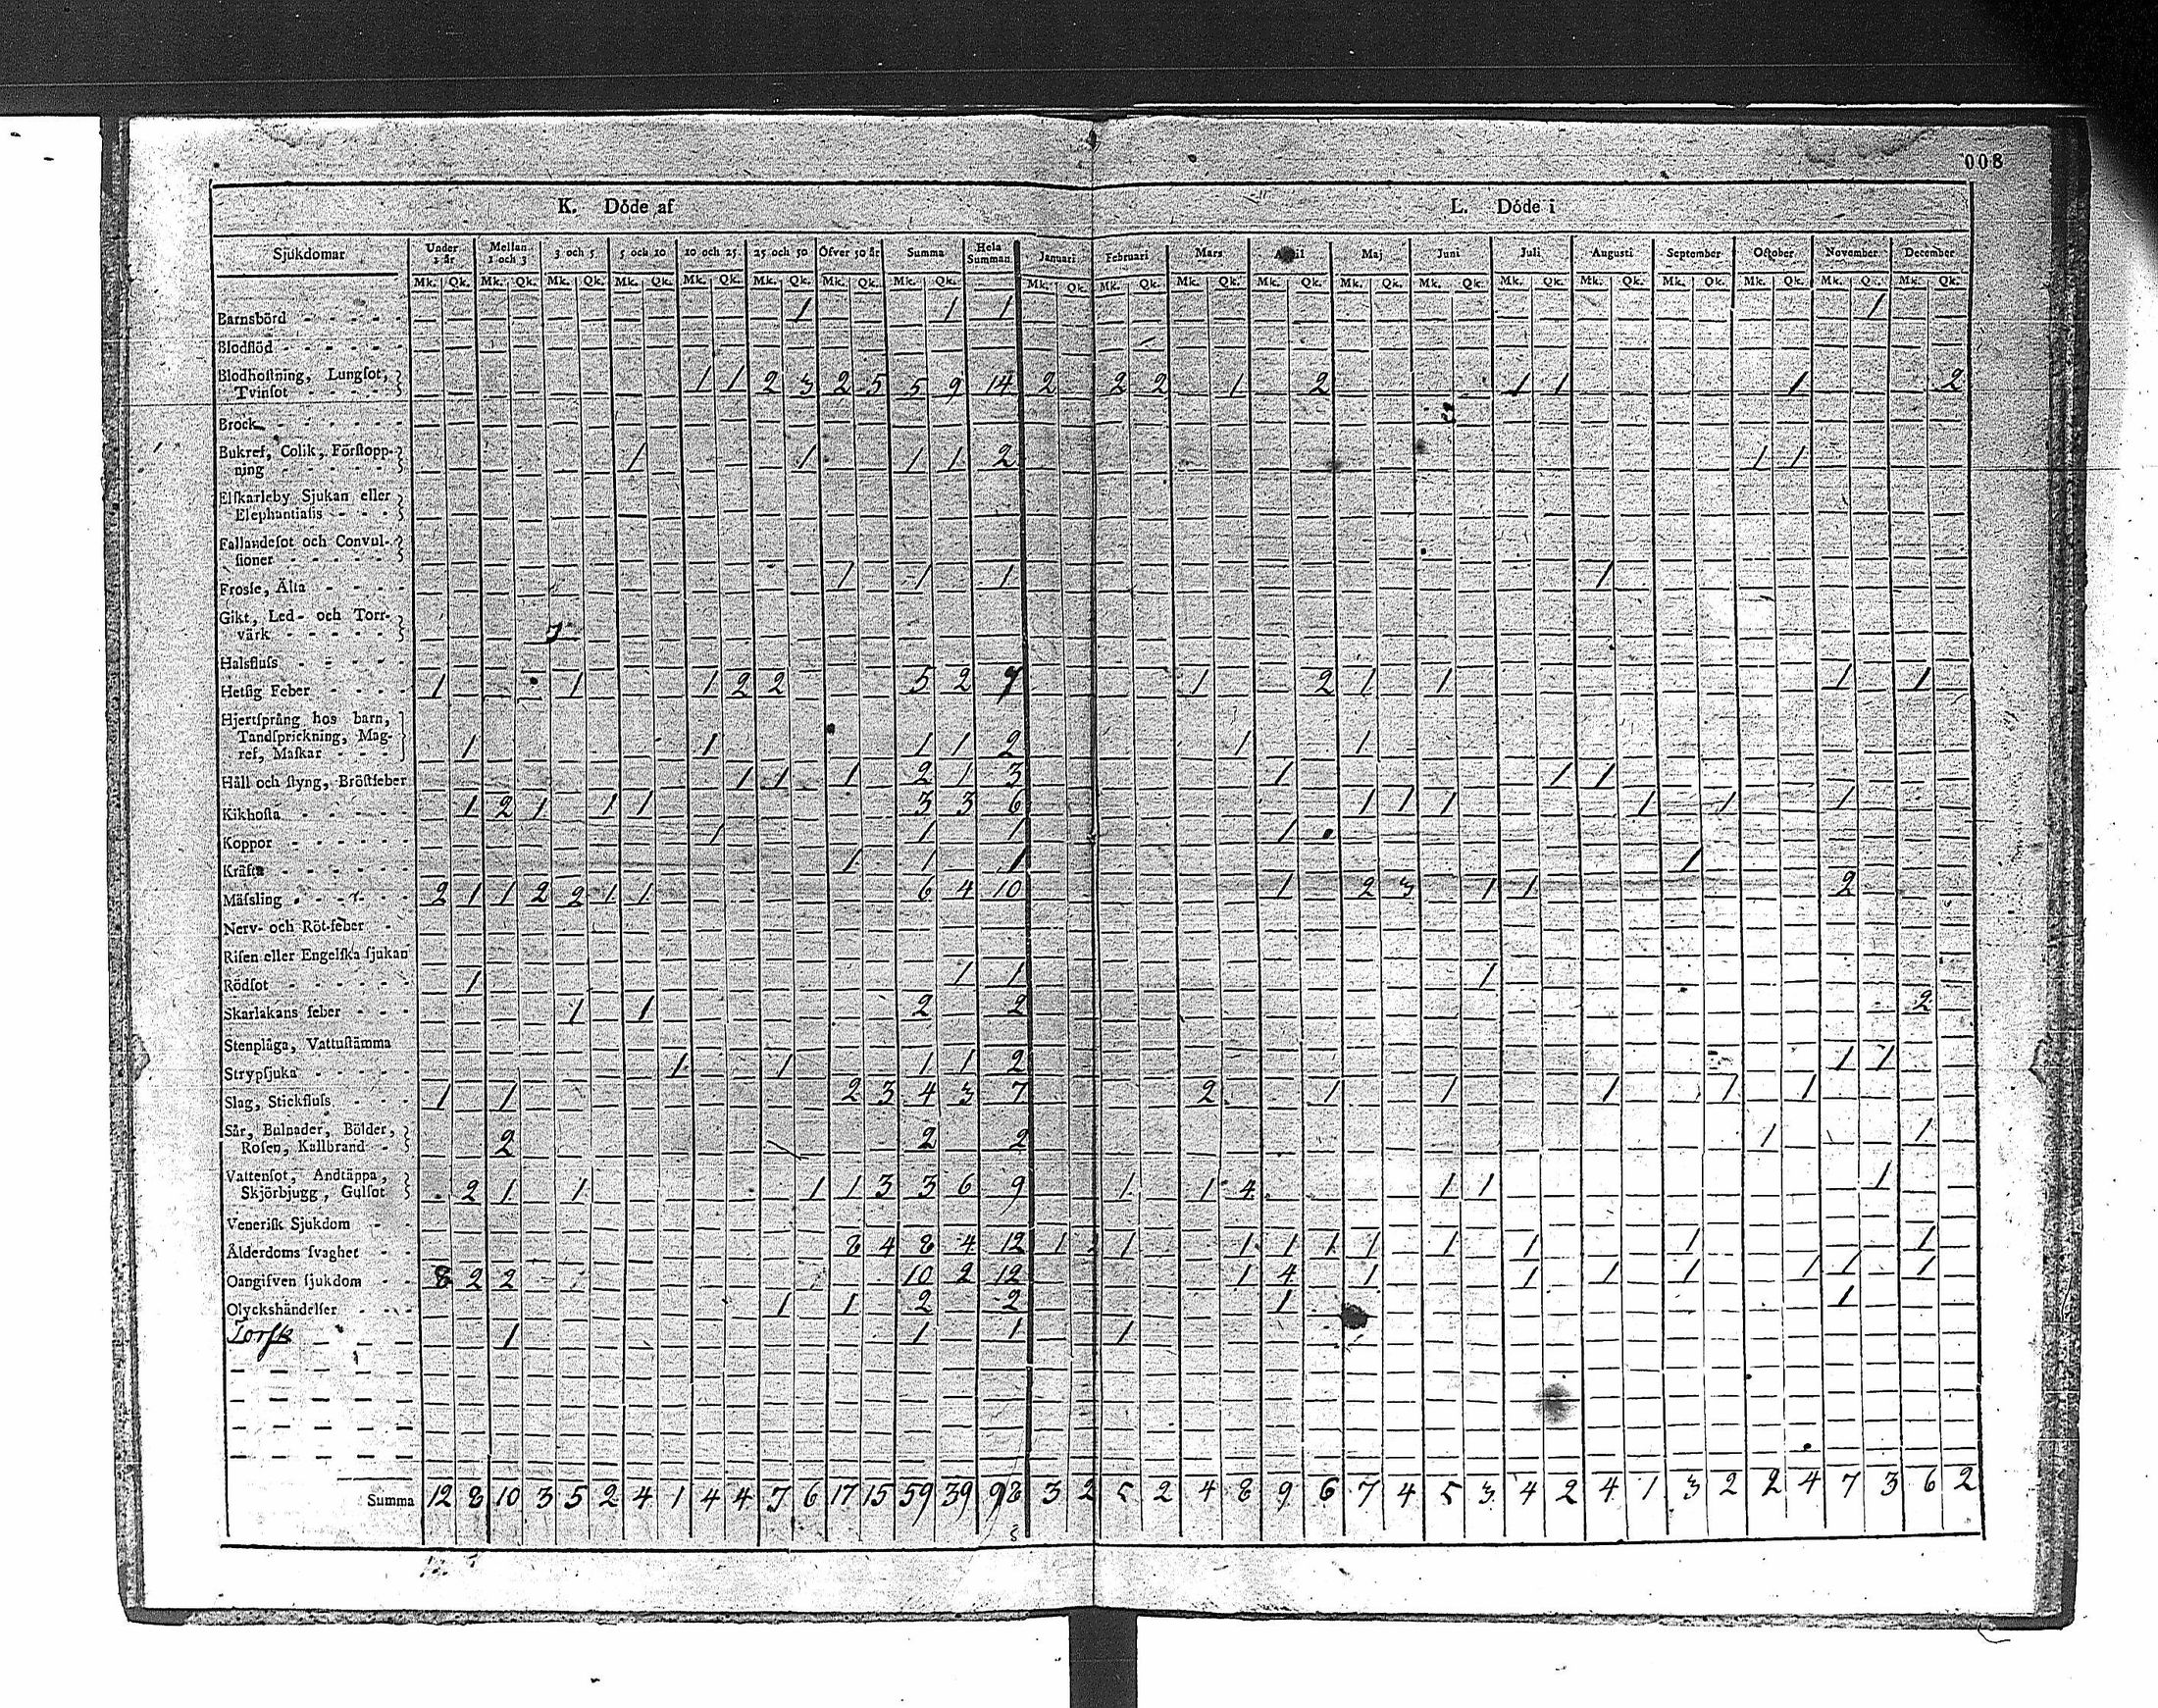 008
K. Döde af L. Döde i
Sjukdomar Under 1 år Mellan 1 och 3 3 och 5 5 och 10 10 och 25 25 och 50 Öfver 50 år Summa Hela Summan Januari Februari Mars April Maj Juni Juli Augusti September October November December
Mk. Qk. Mk. Qk. Mk. Qk. Mk. Qk. Mk. Qk. Mk. Qk. Mk. Qk. Mk. Qk. Mk. Qk. Mk. Qk. Mk. Qk. Mk. Qk. Mk. Qk. Mk. Qk. Mk. Qk. Mk. Qk. Mk. Qk. Mk. Qk. Mk. Qk. Mk. Qk.
Barnsbörd 1 1 1 1
Blodflöd
Blodhoſtning, Lungſot,
Tvinſot 1 1 2 3 2 5 5 9 14 2 2 2 1 2 1 1 1 2
Brock
Bukref, Colik, Förſtopp-
ning 1 1 1 1 2 1 1
Elſkarleby Sjukan eller
Elephantiaſis
Fallandeſot och Convul-
ſioner
Froſſe, Älta 1 1 1 1
Gikt, Led- och Torr-
värk
Halsfluſs
Hetſig Feber 1 1 1 2 2 5 2 7 1 2 1 1 1 1
Hjertſprång hos barn,
Tandſprickning, Mag-
ref, Maſkar 1 1 1 1 2 1 1
Håll och ſtyng, Bröſtfeber 1 1 1 2 1 3 1 1 1
Kikhoſta 1 2 1 1 1 3 3 6 1 1 1 1 1 1
Koppor 1 1 1 1
Kräfta 1 1 1 1
Mäſsling 2 1 1 2 2 1 1 6 4 10 1 2 3 1 1 2
Nerv- och Röt-feber
Riſen eller Engelſka ſjukan
Rödſot 1 1 1 1
Skarlakans feber 1 1 2 2 2
Stenplåga, Vattuſtämma
Strypſjuka 1 1 1 1 2 1 1
Slag, Stickfluſs 1 1 2 3 4 3 7 2 1 1 1 1 1
Sår, Bulnader, Bölder,
Roſen, Kallbrand 2 2 2 1 1
Vattenſot, Andtäppa,
Skjörbjugg, Gulſot 2 1 1 1 1 3 3 6 9 1 1 4 1 1 1
Veneriſk Sjukdom
Ålderdoms ſvaghet 8 4 8 4 12 1 2 1 1 1 1 1 1 1 1 1
Oangifven ſjukdom 8 2 2 10 2 12 1 4 1 1 1 1 1 1 1
Olyckshändelſer 1 1 2 2 1 1
Torſk 1 1 1 1
Summa 12 8 10 3 5 2 4 1 4 4 7 6 17 15 59 39 98 3 2 5 2 4 8 9 6 7 4 5 3 4 2 4 1 3 2 2 4 7 3 6 2